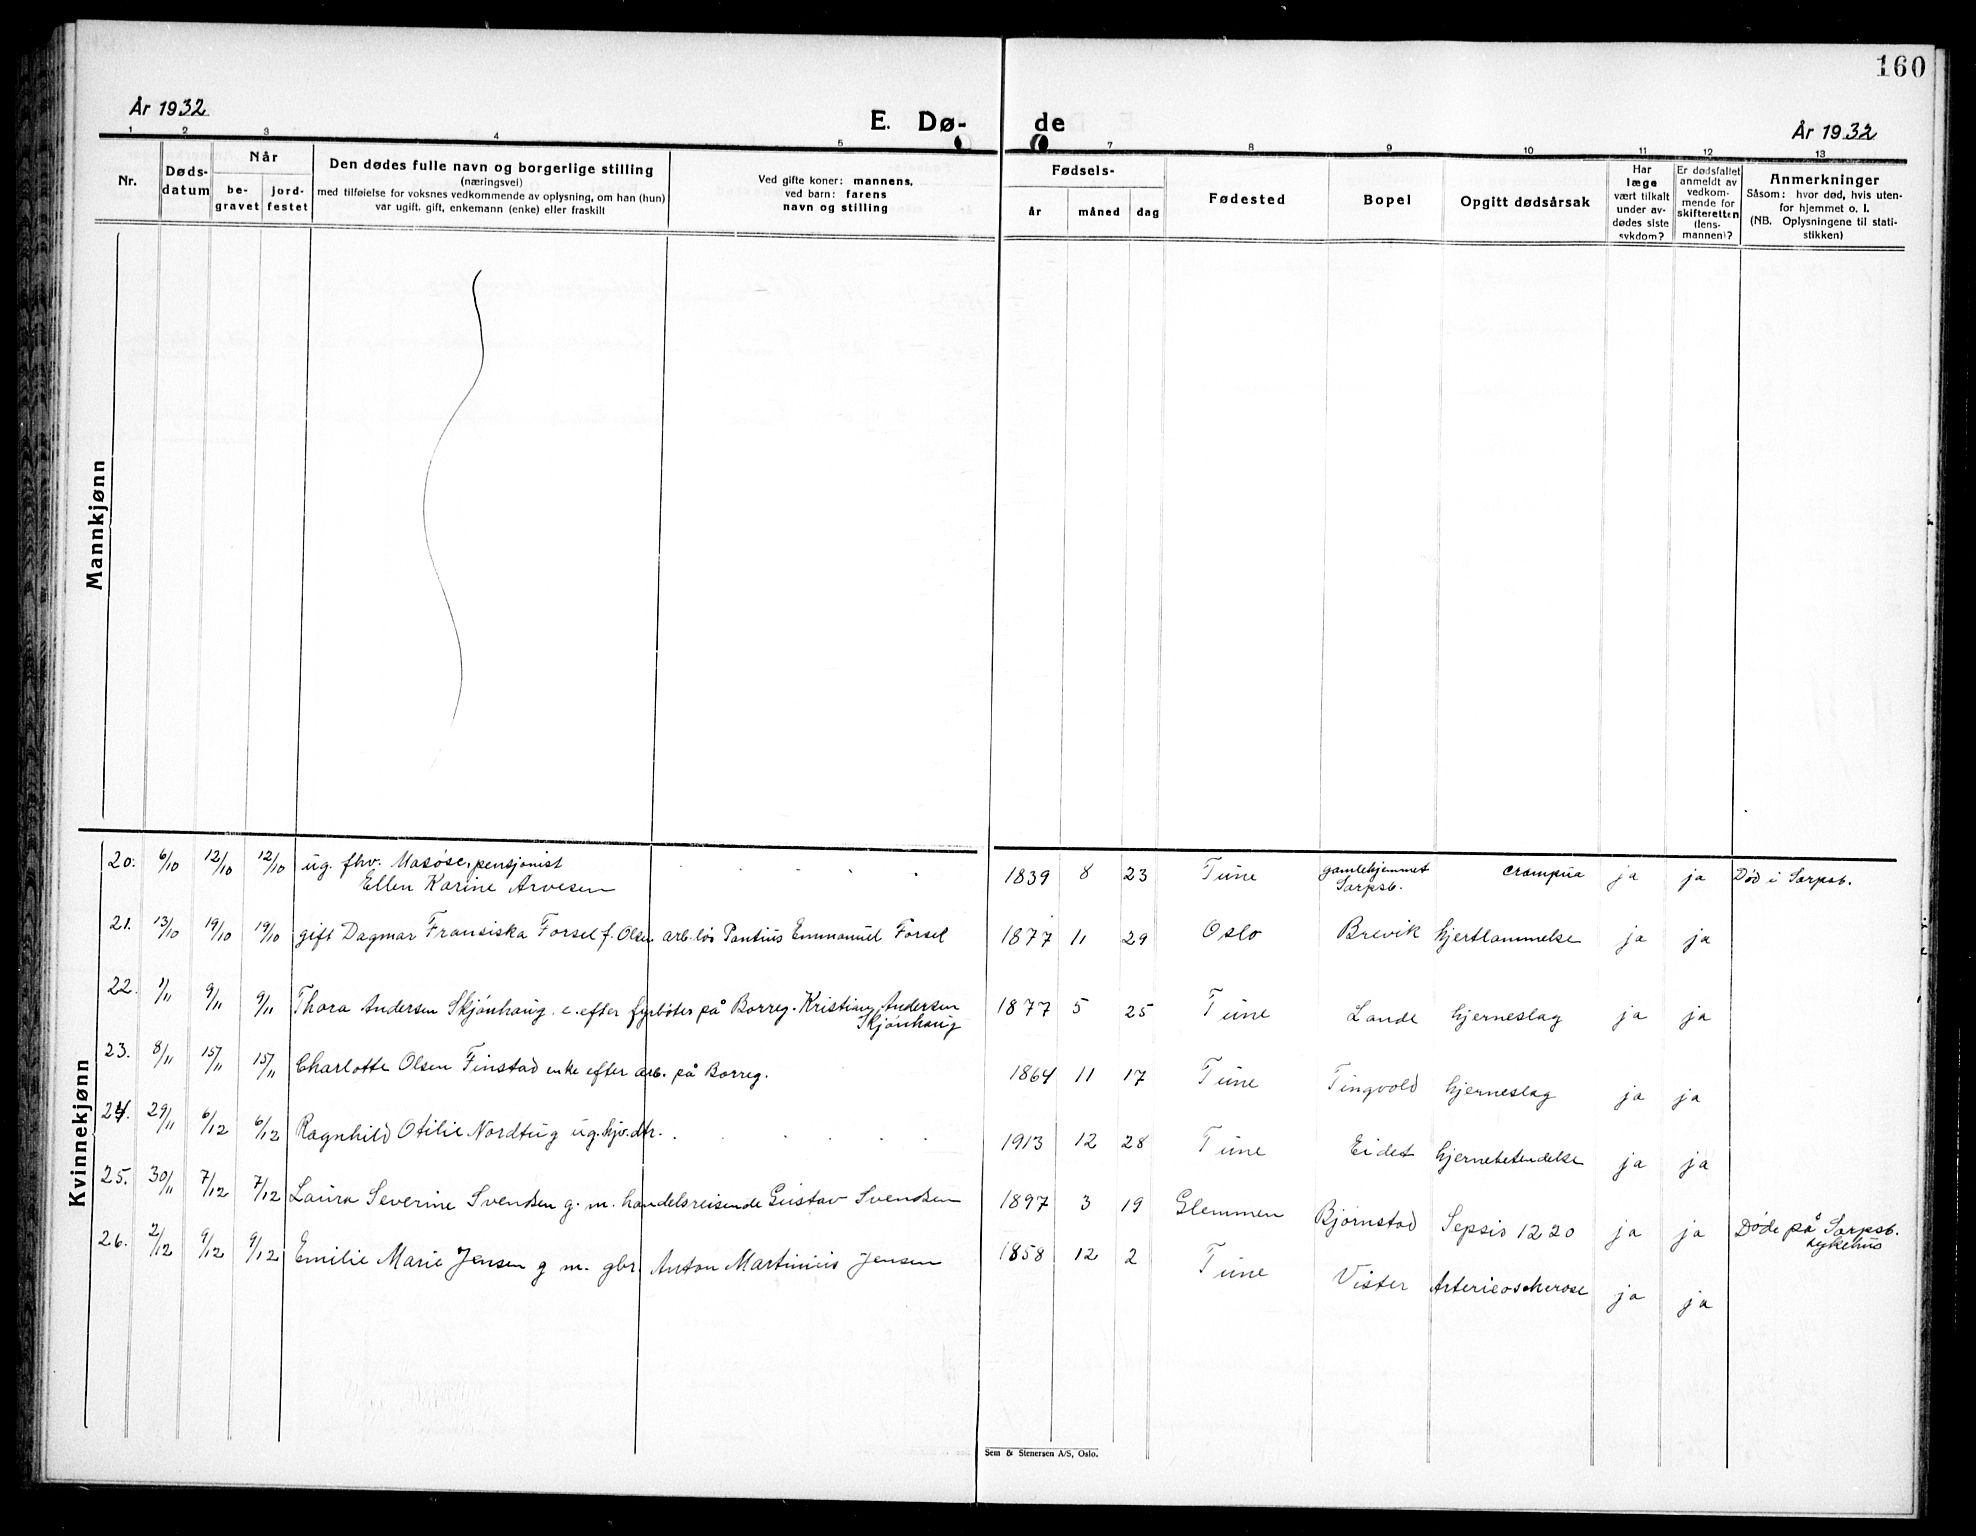 160
År 1932
E. Dø-
de
År 1932
1 2 3 4 5 7 8 9 10 11 12 13
Nr.
Døds-
datum
Når
be-
gravet
jord-
festet
Den dødes fulle navn og borgerlige stilling
(næringsvei)
med tilføielse for voksnes vedkommende av oplysning, om han (hun)
var ugift, gift, enkemann (enke) eller fraskill
Ved gifte koner: mannens,
ved barn: farens
navn og stilling
Fødsels-
år
måned
dag
Fødested
Bopel
Opgitt dødsårsak
Har
læge
vært tilkalt
under av-
dødes siste
sykdom?
Er dødsfallet
anmeldt av
vedkom-
mende for
skifteretten
(lens-
mannen)?
Anmerkninger
Såsom: hvor død, hvis uten-
for hjemmet o. l.
(NB. Oplysningene til stati-
stikken)
Mannkjønn
Kvinnekjønn
20. 6/10 12/10 12/10 ug. fhv. pensjonist
Ellen Karine Arvesen
1839 8 23 Tune gamlehjemmet
Sarpsb.
ja ja Død i Sarpsb.
21. 13/10 19/10 19/10 gift Dagmar Fransiska Forsel f. Olsen arb.løs Pontius Emmanuel Forsel 1877 11 29 Oslo Brevik hjertlammelse ja ja
22. 1/11 9/11 9/11 Thora Andersen Skjønhaug. e. efter fyrbøter på Borreg. Kristian Andersen
Skjønhaug
1877 5 25 Tune Lande hjerneslag ja ja
23. 8/11 15/11 15/11 Charlotte Olsen Finstad enke efter arb. på Borreg. 1864 11 17 Tune Tingvold hjerneslag ja ja
24. 29/11 6/12 6/12 Ragnhild Otilie Nordtug ug. hjv. dtr. 1913 12 28 Tune Eidet hjernebetendelse ja ja
25. 30/11 7/12 7/12 Laura Severine Svendsen g. m. handelsreisende Gustav Svendsen 1897 3 19 Glemmen Bjørnstad Sepsis 1220 ja ja Døde på Sarpsb.
sykehus
26. 2/12 9/12 9/12 Emilie Marie Jensen g m. gbr. Anton Martinius Jensen 1858 12 2 Tune Vister Arterieosklerose ja ja
Sem & Stenersen A/S, Oslo.